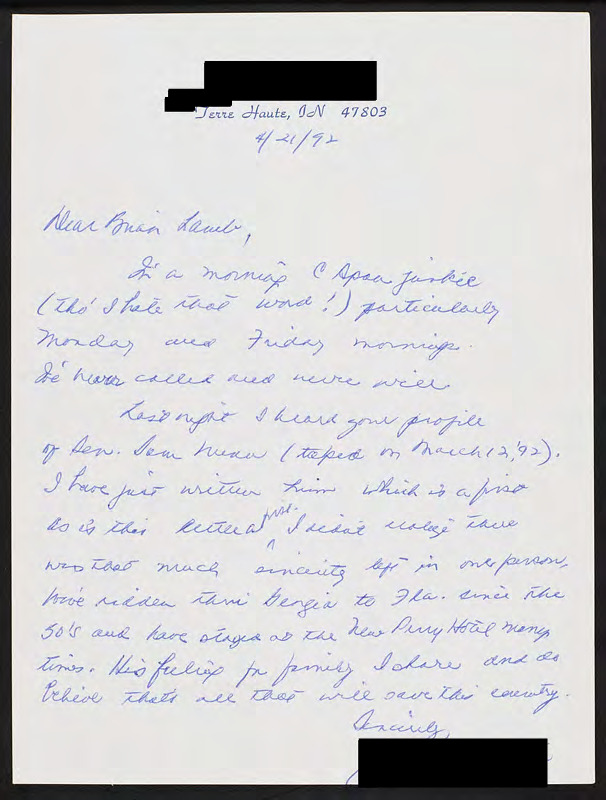 Terre Haute, IN 47803
4/21/92
Dear Brian Lamb,
I'm a morning C Span junkie
(tho' I hate that word!) particularly
Monday and Friday mornings.
I've never called and never will.
Last night I heard your profile
of Sen. Sam Nunn (taped on March 12, '92).
I have just written him which is a first
as is this letter a first. I didn't realize there
was that much sincerity left in one person.
We've ridden thru Georgia to Fla. since the
50's and have stayed at the New Perry Hotel many
times. His feelings for family I share and do
believe thats all that will save this country.
Sincerely,